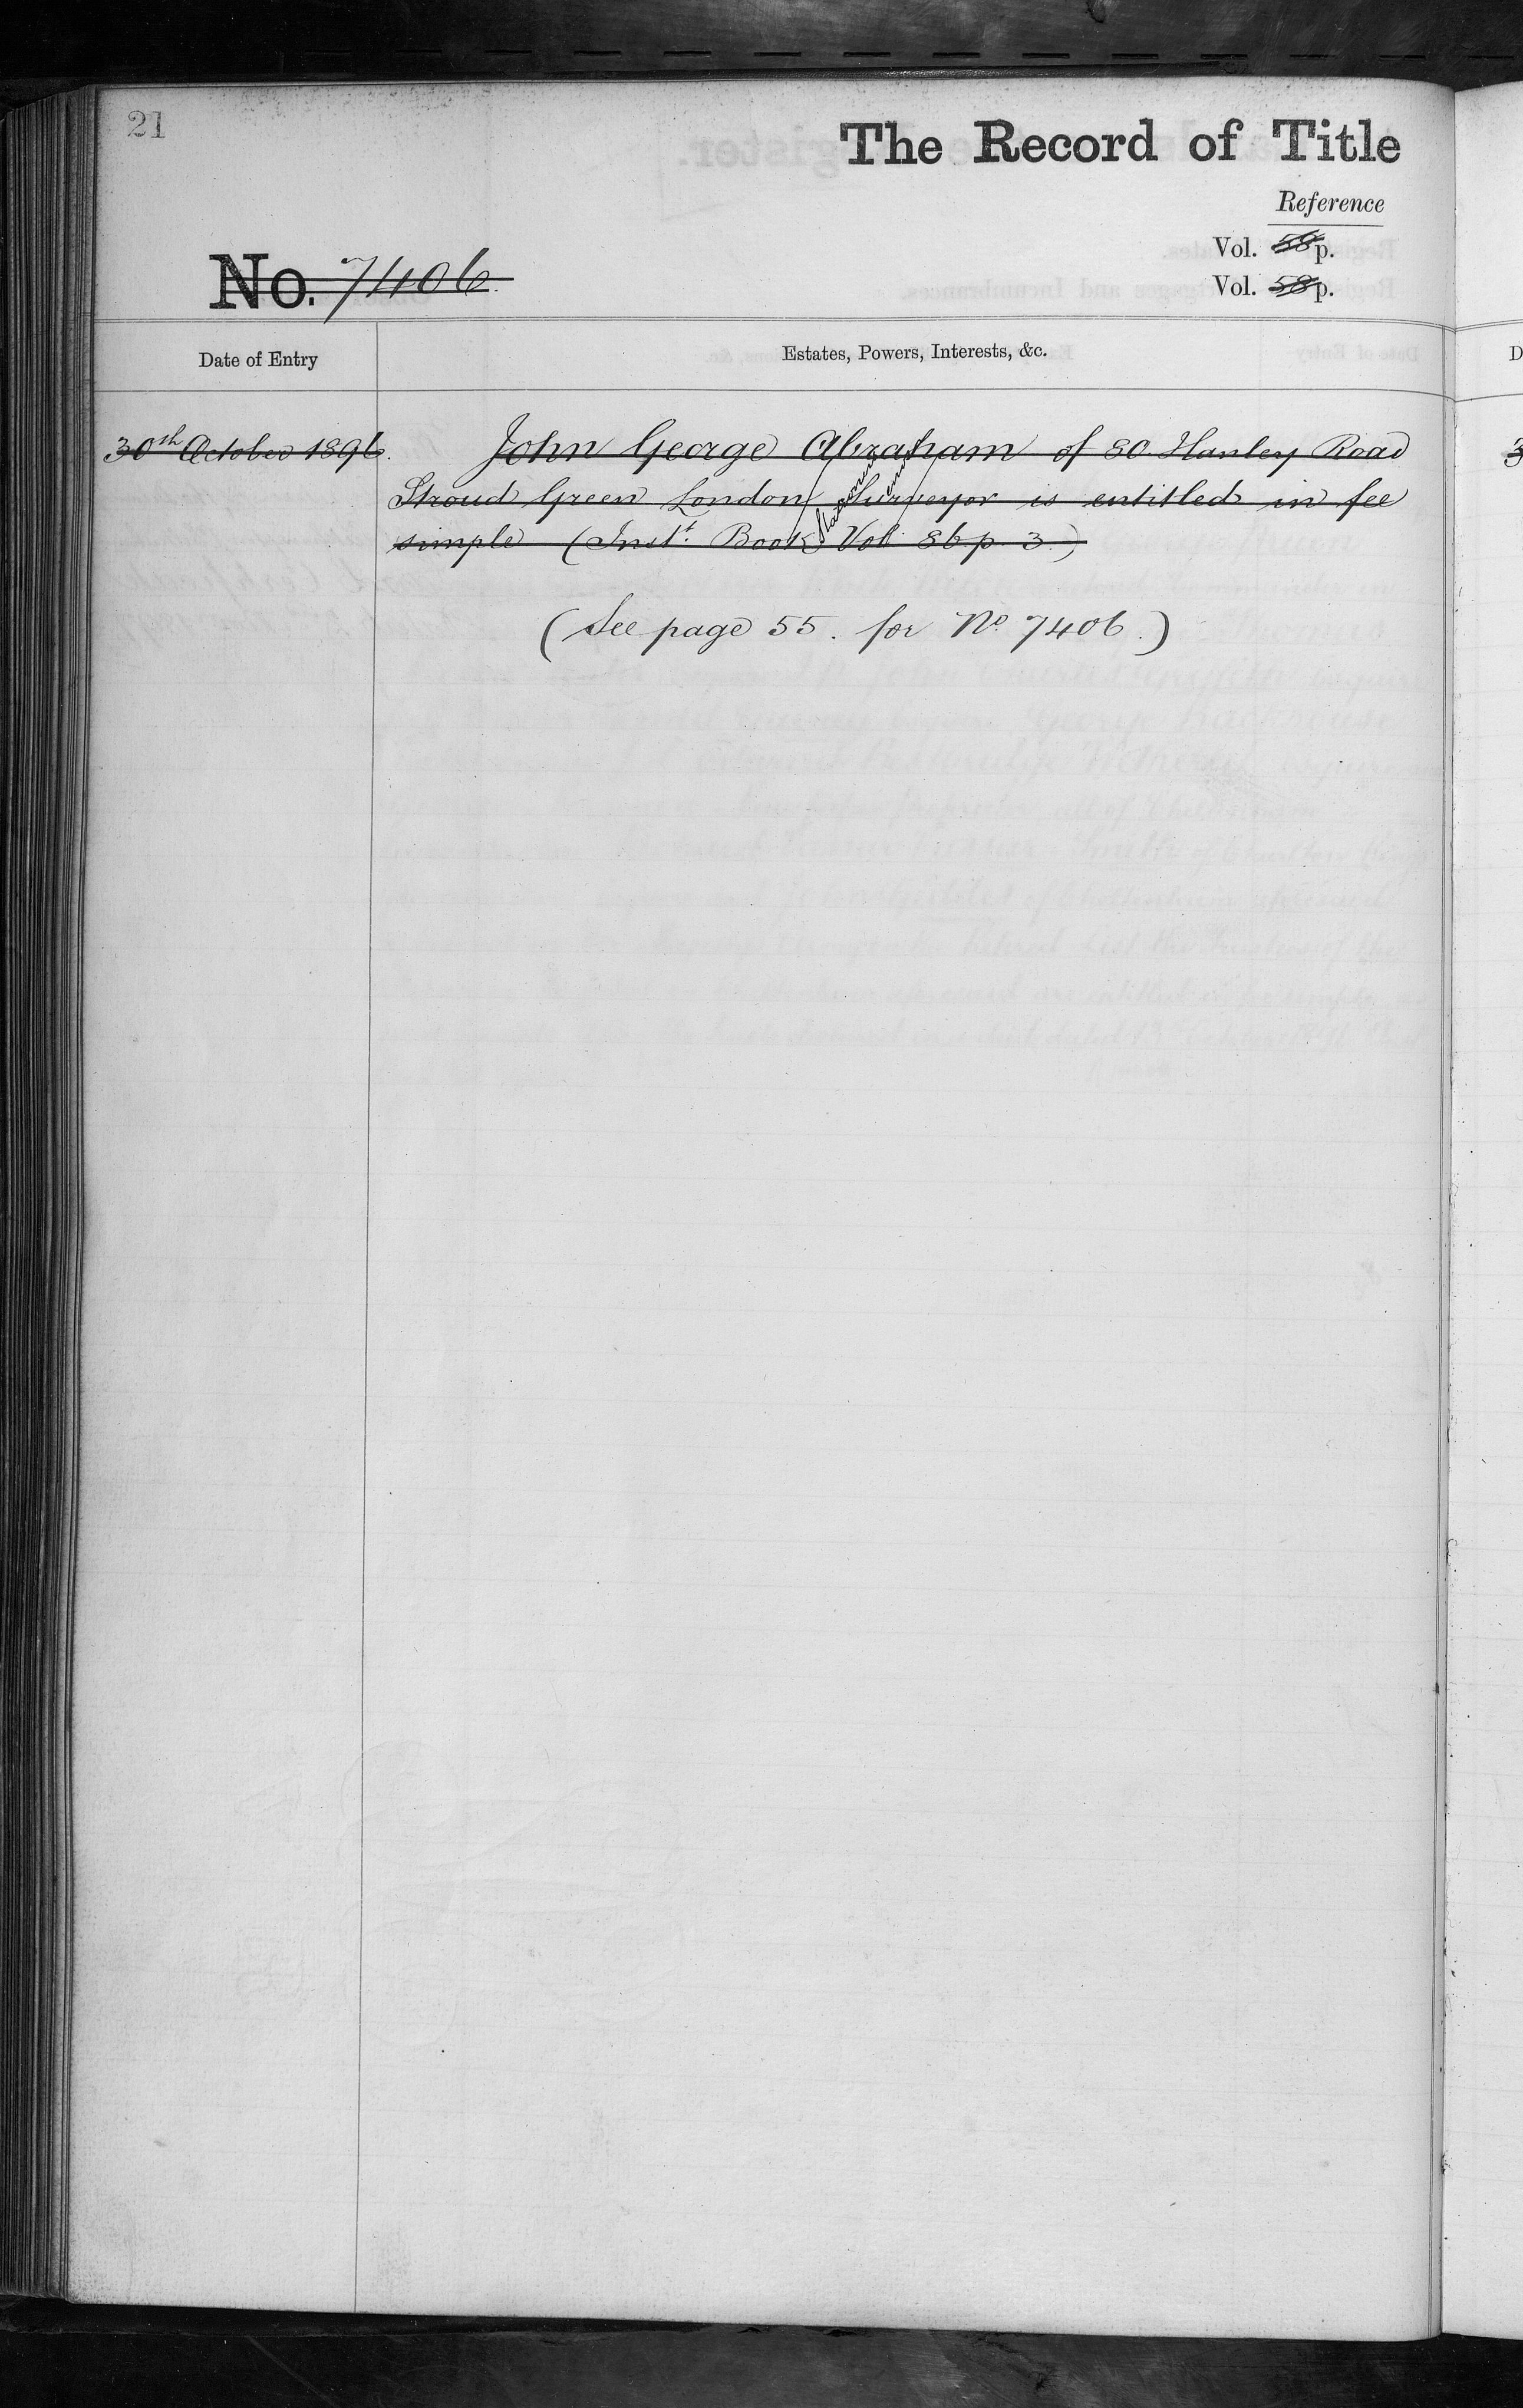 21
The Record of Title
Reference
Vol. 58 p.
Vol. 58 p.
No. 7406.
Date of Entry
Estates, Powers, Interests, &c.
30th October 1896.
John George Abraham of 80 Hanley Road
Stroud Green London Surveyor is entitled in fee
simple (Inst. Book Vol. 86 p. 3.)
(See page 55. for No. 7406.)